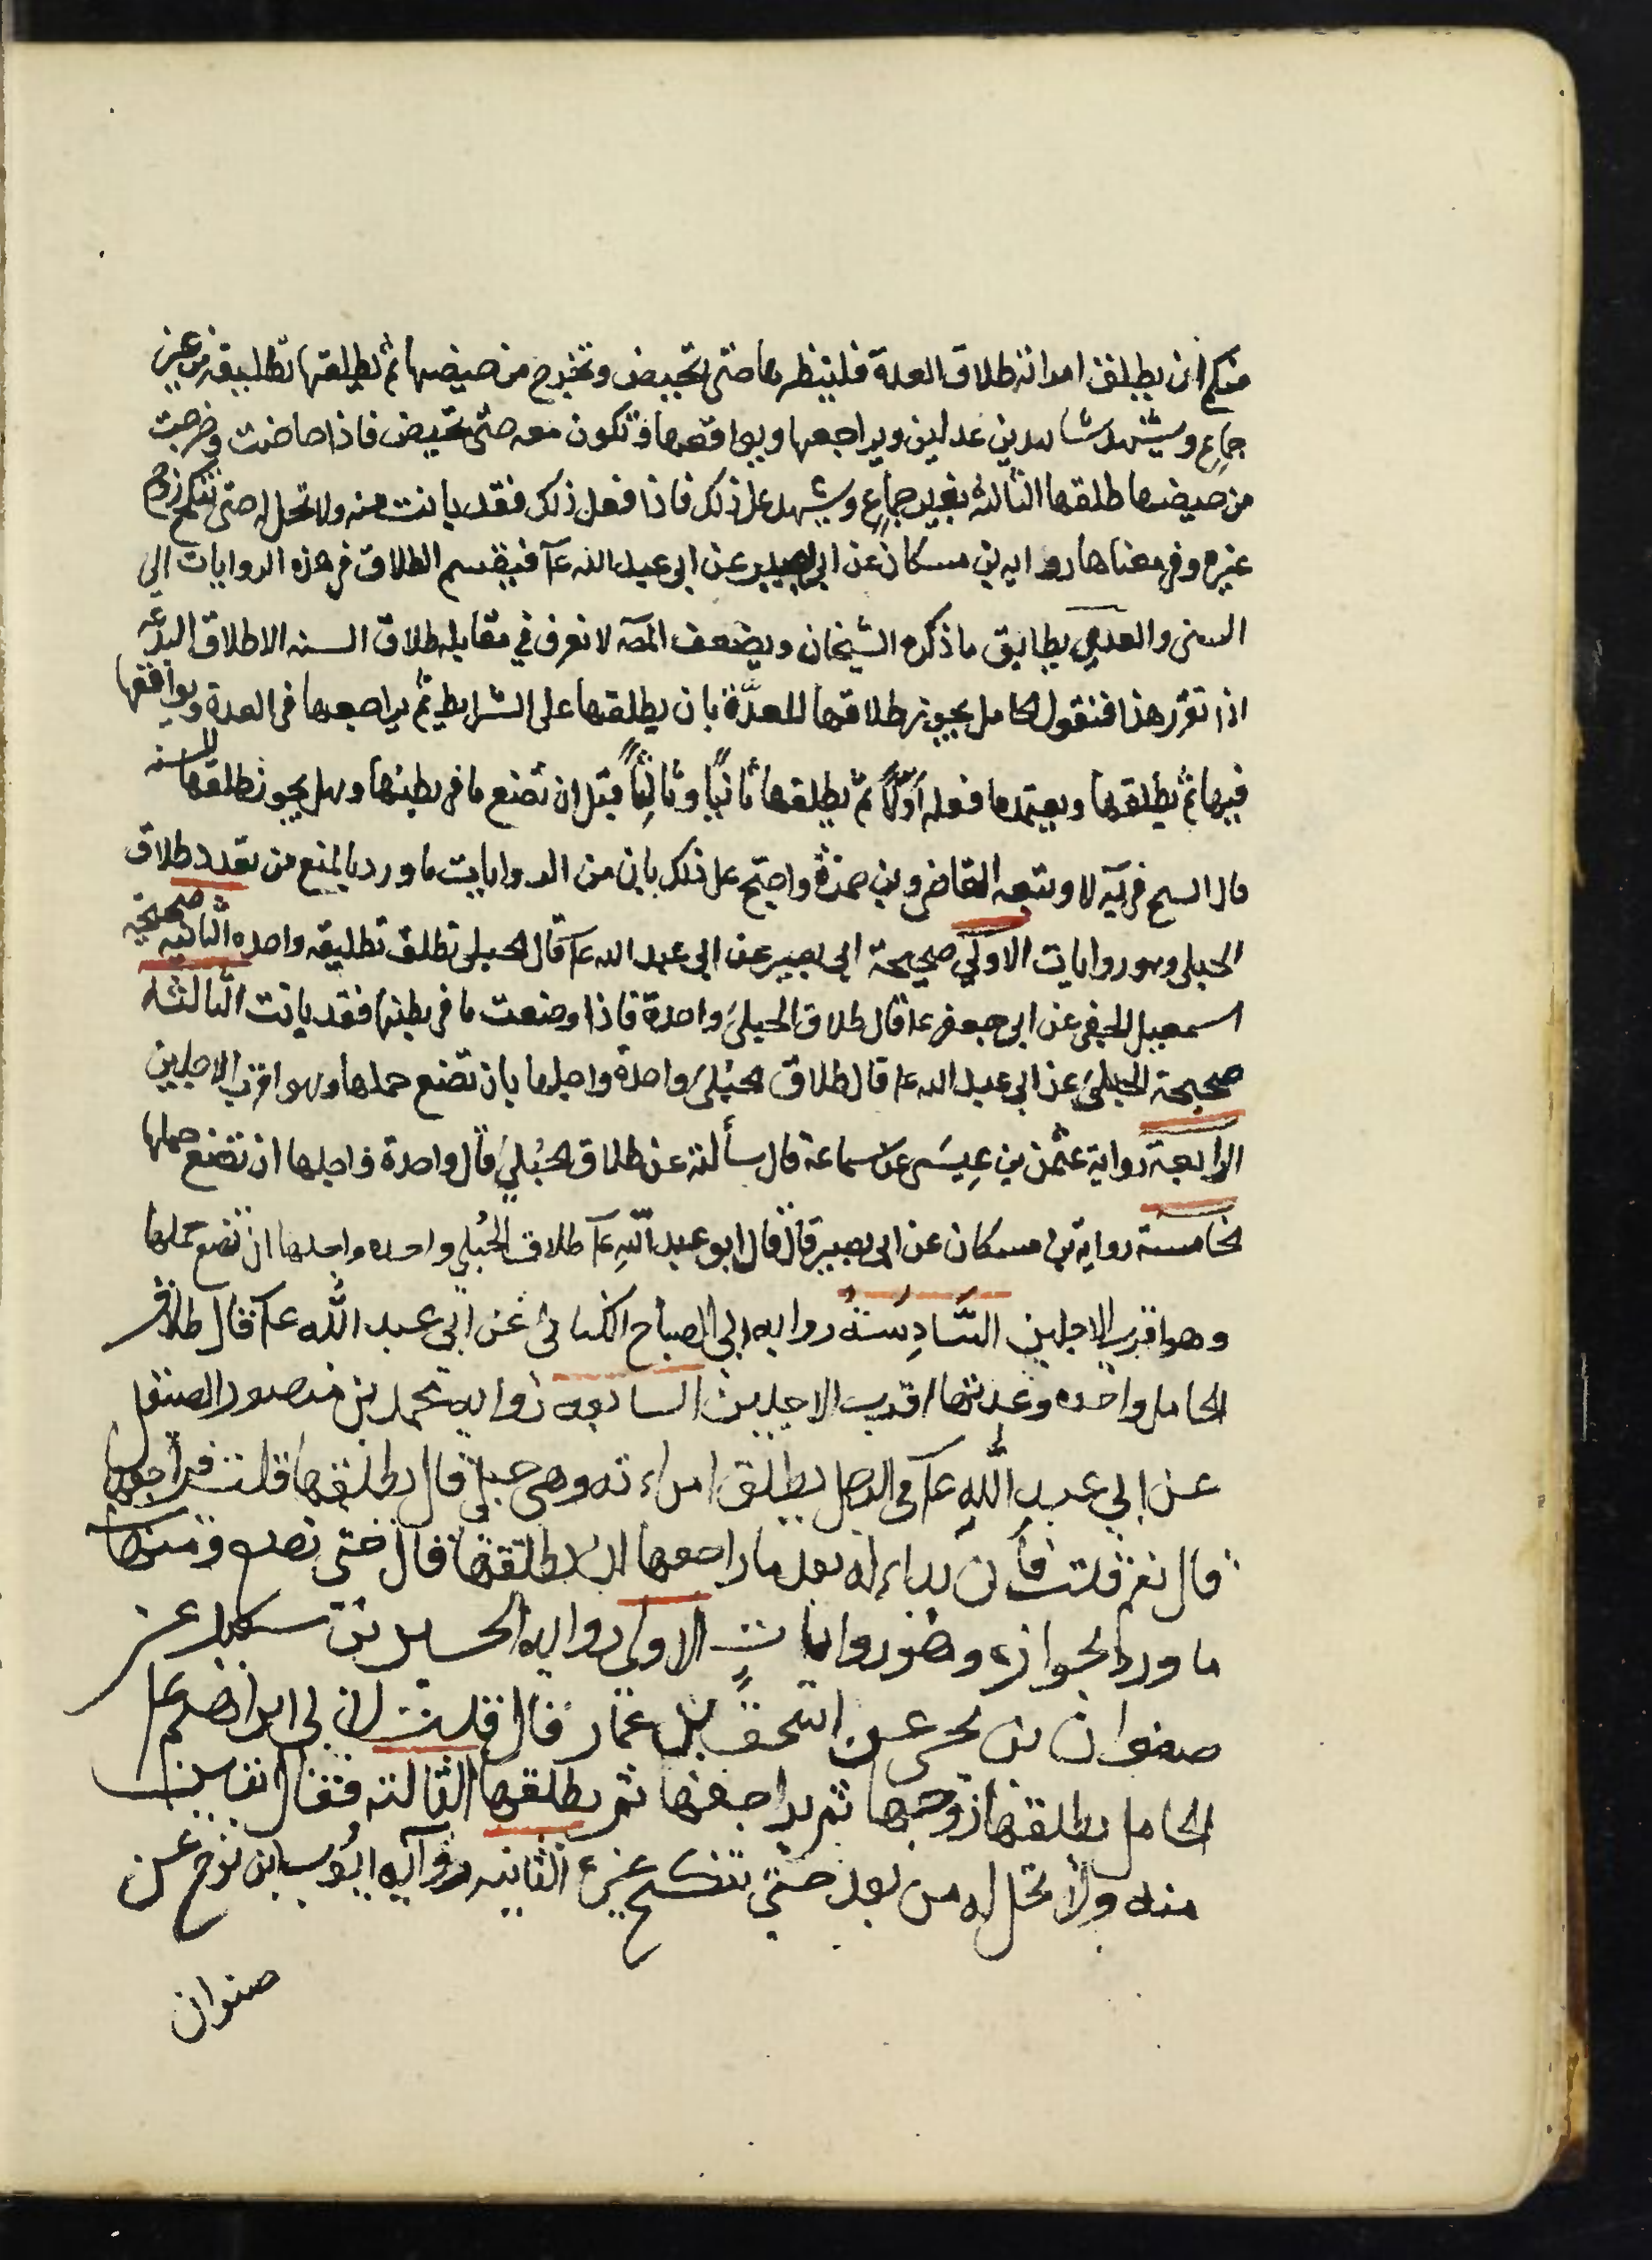 منكم ان يطلق امراته طلاق العدة فلينظر بها حتى تحيض وتخرج من حيضها ثم يطلقها تطليقة من غير
جماع ويشهد شاهدين عدلين ويراجعها ويواقعها وتكون معه حتى تحيض فاذا حاضت وخرجت
من حيضها طلقها الثالثة بغير جماع ويشهد على ذلك فاذا فعل ذلك فقد بانت منه ولا تحل له حتى تنكح زوجا
غيره وفى معناها رواية بن مسكان عن ابى بصير عن ابى عبد الله ع فينقسم الطلاق فى هذه الروايات الى
السنى والعدى يطابق ما ذكره الشيخان ويضعف المص لا نعرف في مقابله طلاق السنه الا طلاق البدعه
اذا تقرر هذا فنقول الحامل يجوز طلاقها للعدّة بان يطلقها على الشرايط ثم يراجعها فى العدة ويواقعها
فيها ثم يطلقها ويعتمد ما فعله أوّلاً ثم يطلقها ثانياً وثالثاً قبل ان تضع ما فى بطنها وهل يجوز طلاقها للسنه
قال الشيخ فى يه لا وتبعه القاضى وبن حمزة واحتج على ذلك بان من الروايات ما ورد بالمنع من تعدد طلاق
الحبلى وهو روايات الاولى صحيحة ابى بصير عن ابى عبد الله ع قال الحبلى تطلق تطليقه واحده الثانيه صحيحة
اسمعيل الجعفى عن ابى جعفر ع قال طلاق الحبلى واحدة فاذا وضعت ما فى بطنها فقد بانت الثالثه
صحيحة الحلبى عن ابى عبد الله ع قال طلاق الحبلى واحدة واجلها بان تضع حملها وهو اقرب الاجلين
الرابعة رواية عثمن بن عيسى عن سماعة قال سألته عن طلاق الحبلى قال واحدة واجلها ان تضع حملها
الخامسة رواية بن مسكان عن ابى بصير قال قال ابو عبد الله ع طلاق الحبلى واحده واجلها ان تضع حملها
وهو اقرب الاجلين السّادسة روايه ابى الصباح الكنانى عن ابى عبد الله ع قال طلاق
الحامل واحده وعدتها اقرب الاجلين السابعه روايه محمد بن منصور الصيقل
عن ابي عبد الله ع فى الرجل يطلق امراءته وهى حبلى قال يطلقها قلت فيراجعها
قال نعم قلت فأن بداء له بعد ما راجعها ان يطلقها قال حتى تضع ومنها
ما ورد بجوازه وهو روايات الاولى روايه الحسين بن سعيد عن
صفوان بن يحى عن اسحق بن عمار قال قلت لابى ابراهيم ع
الحامل يطلقها زوجها ثم يراجعها ثم يطلقها الثالثه فقال تبين
منه ولا تحل له من بعد حتى تنكح غيره الثانيه روايه ايوب بن نوح عن
صفوان